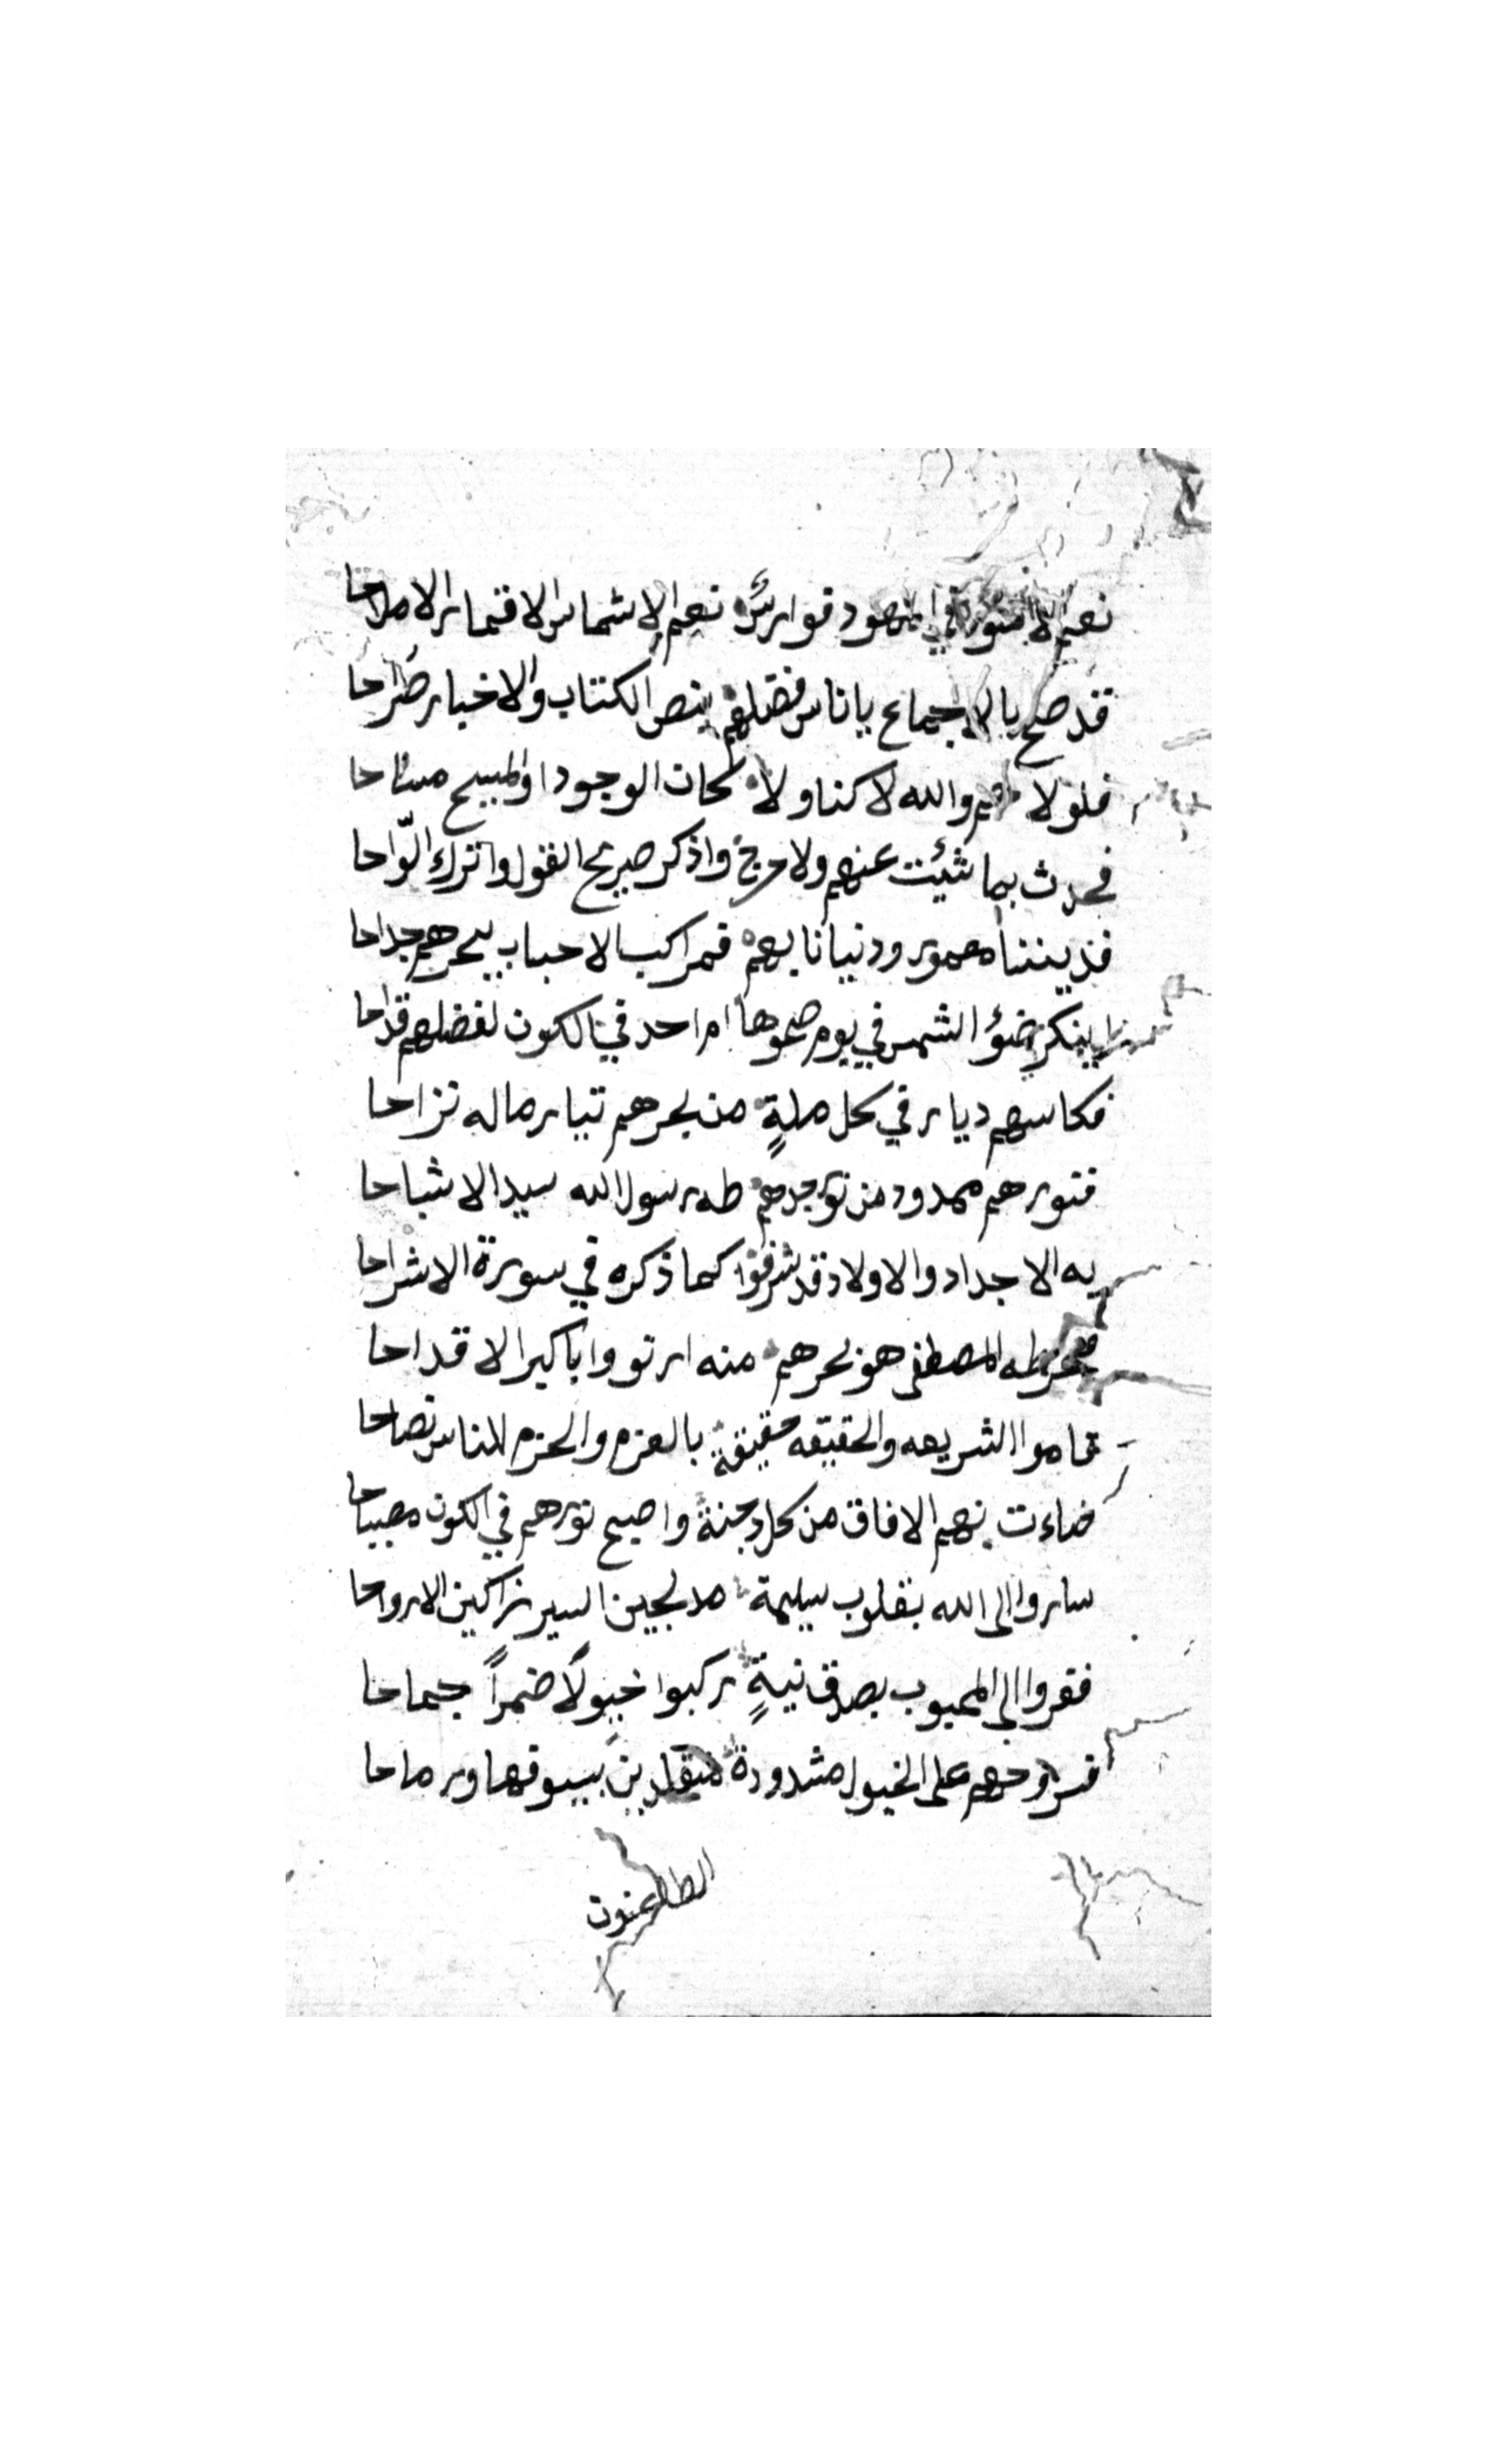 نعم الا في العهود فوارسٌ نعم الاشماس الاقمار الاملاحا
قد صح بالاجماع ياناس فضلهم بنص الكتاب والاخبار صراحا
فلولا هم والله لا كنا ولا كان الوجود والمبيح مباحا
فحدث بما شئت عنهم ولا حرج واذكر صريح القول واترك الوّاحا
فديننا معمور ودنيانا بهم فمراكب الاحباب ببحرهم جداحا
ينكر ضؤ الشمس في يوم صحوها ام احد في الكون لفضلهم قداحا
فكاسهم ديار في كل ملةٍ من بحرهم تيار ماله نزاحا
فنورهم ممدود من نور جدهم طه رسول الله سيد الاشباحا
به الاجداد والاولاد قد شرفوا كما ذكره في سورة الاشراحا
طه المصطفى هو بحرهم منه ارتووا باكبر الاقداحا
قاموا الشريعه والحقيقه حقيقة بالعزم والحزم للناس نصاحا
ضاءت بهم الافاق من كل دجنة واصبح نورهم في الكون مصباحا
ساروا الى الله بقلوب سليمة مدلجين السير زاكين الارواحا
ففروا الى المحبوب بصدق نيةٍ ركبوا خيولاً ضمراً جماحا
فسروجهم على الخيول مشدودة متقلدين بسيوفها ورماحا
الطاعنون